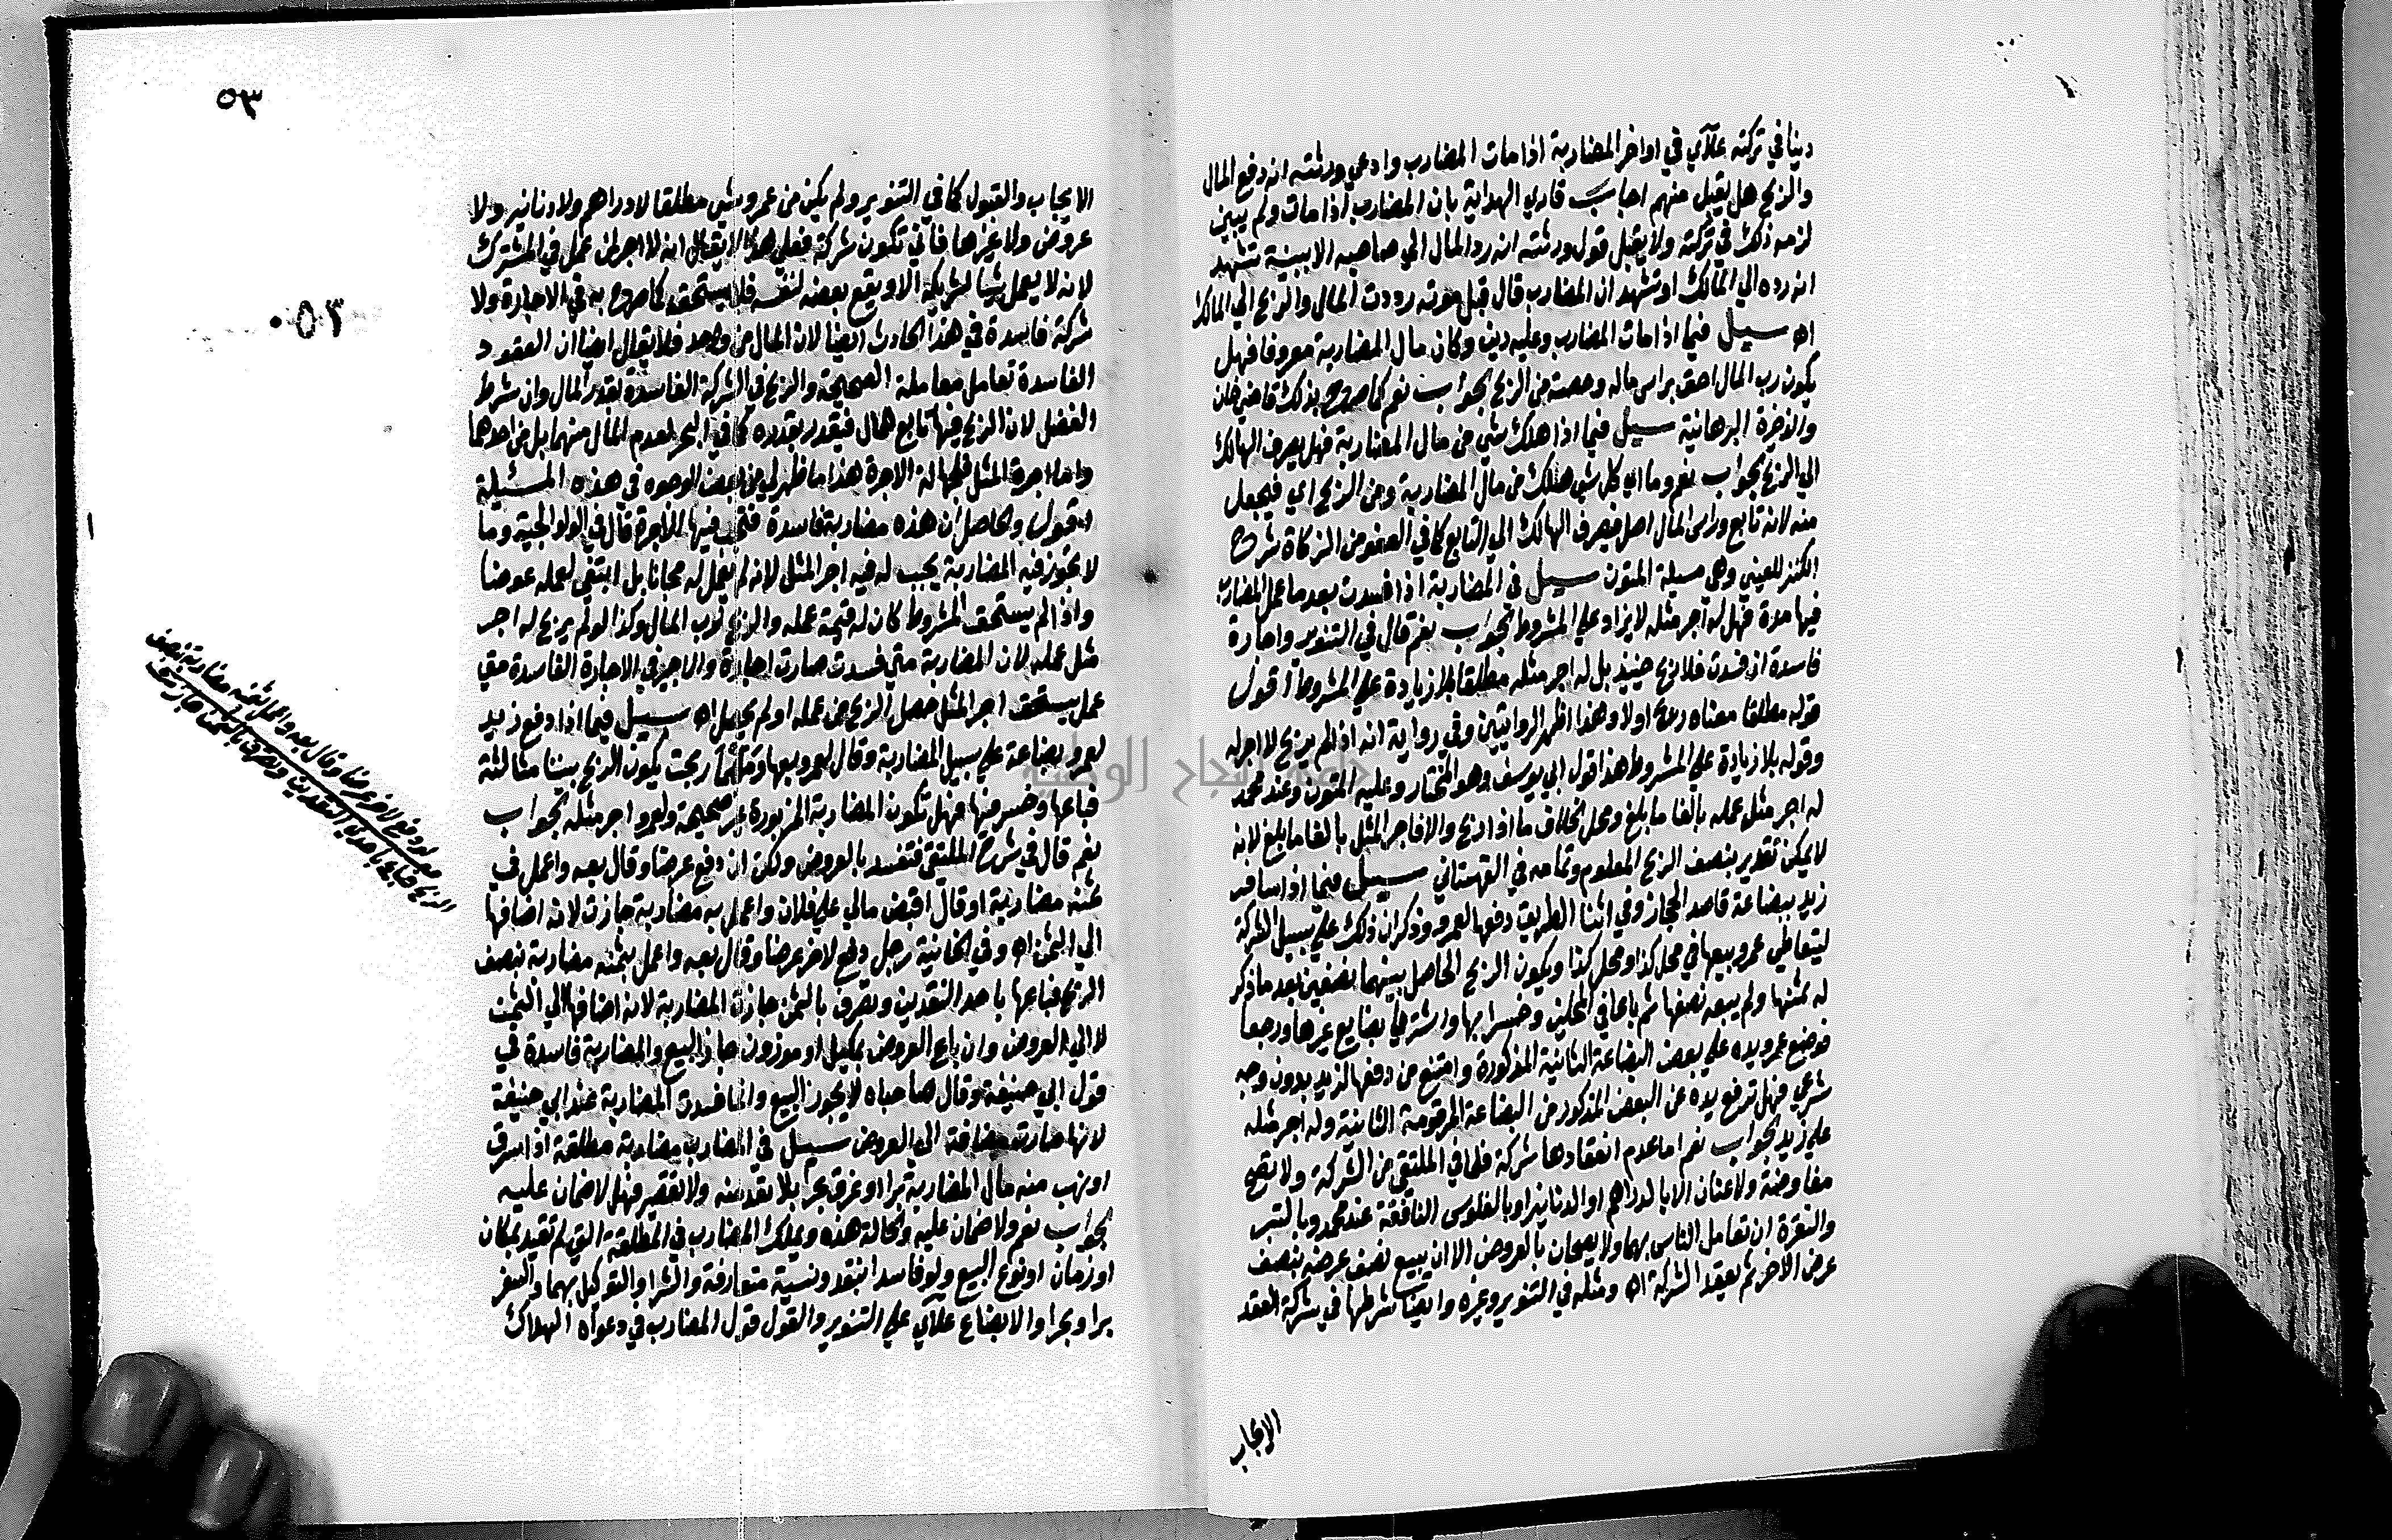 دينا في تركته علائي في اواخر المضاربة اذا مات المضارب وادعي ورثته انه دفع المال
والربح هل يقبل منهم اجاب قاري الهداية بان المضارب اذا مات ولم يبين
لزمه ذلك في تركته ولا يقبل قول ورثته انه رد المال الي صاحبه الا ببينة تشهد
انه رده الي المالك او تشهد ان المضارب قال قبل موته رددت المال والربح الي المالك
اه سيل فيما اذا مات المضارب وعليه دين وكان مال المضاربة معروفا فهل
يكون رب المال احق براس ماله وحصته من الربح الجواب نعم كما صرح بذلك قاضي خان
والذخيرة البرهانية سيل فيما اذا هلك شي من مال المضاربة فهل يصرف الهالك
الي الربح الجواب نعم وما اي كل شي هلك من مال المضاربة ومن الربح اي فيجعل
منه لانه تابع وراس المال اصل فيصرف الهالك الي التابع كما في العفو من الزكاة شرح
الكنز للعيني وهي مسيلة المتون سيل في المضاربة اذا فسدت بعد ما عمل المضارب
فيها مدة فهل له اجر مثله لا يزاد علي المشروط الجواب نعم قال في التنوير واجارة
فاسدة ان فسدت فلا ربح حينيذ بل له اجر مثله مطلقا بلا زيادة علي المشروط اقول
قوله مطلقا معناه ربح اولا وهذا اظهر الروايتين وفي رواية انه اذا لم يربح لا اجر له
وقوله بلا زيادة علي المشروط هذا قول ابي يوسف وهو المختار وعليه المتون وعند محمد
له اجر مثل عمله بالغا ما بلغ ومحل الخلاف ما اذا ربح والا فاجر المثل بالغا ما بلغ لانه
لا يمكن تقدير بنصف الربح المعدوم وتمامه في القهستاني سيل فيما اذا سافر
زيد ببضاعة قاصد الحجاز وفي اثنا الطريق دفعها لعمرو وذكر ان ذلك علي سبيل الشركة
ليتعاطي عمرو بيعها في محل كذا ومحل كذا ويكون الربح الحاصل بينهما نصفين بعد ما ذكر
له ثمنها ولم يبعه نصفها ثم باعا في المحلين وخسرا بها واشتريا بضايع غيرها ورجعا
فوضع عمرو يده علي بعض البضاعة الثانية المذكورة وامتنع من دفعها لزيد بدون وجه
شرعي فهل ترفع يده عن البعض المذكور من البضاعة المرقومة الثانية وله اجر مثله
علي زيد الجواب نعم اما عدم انعقادها شركة فلما في الملتقي من الشركة ولا تصح
مفاوضة ولا عنان الا بالدراهم او الدنانير او بالفلوس النافقة عند محمد وبالتبر
والنقرة ان تعامل الناس بهما ولا يصحان بالعروض الا ان يبيع نصف عرضه بنصف
عرض الاخر ثم يعقد الشركة اه ومثله في التنوير وغيره وايضا شرطها في شركة العقد
الايجاب
٥٣
٥٣
الايجاب والقبول كما في التنوير ولم يكن من عمرو شي مطلقا لا دراهم ولا دنانير ولا
عروض ولا غيرها فاني تكون شركة فعلي هذا لا يقال انه لا اجر لمن عمل في المشترك
لانه لا يعمل شيا لشريكه الا ويقع بعضه لنفسه فلا يستحق كما صرح به في الاجارة ولا
شركة فاسدة في هذا الحادث ايضا لان المال من واحد فلا يقال ايضا ان العقود
الفاسدة تعامل معاملة الصحيحة والربح في الشركة الفاسدة بقدر المال وان شرط
الفضل لان الربح فيها تابع للمال فيقدر بقدره كما في البحر لعدم المال منهما بل من احدهما
واما اجرة المثل فلجهالة الاجرة هذا ما ظهر لي من بعض الوجوه في هذه المسئيلة
اقول والحاصل ان هذه مضاربة فاسدة فتجب فيها الاجرة قال في الولوالجية وما
لا تجوز فيه المضاربة يجب له فيه اجر المثل لانه لم يعمل له مجانا بل ابتغي لعمله عوضا
واذا لم يستحق المشروط كان له قيمة عمله والربح لرب المال وكذا لو لم يربح له اجر
مثل عمله لان المضاربة متي فسدت صارت اجارة والاجير في الاجارة الفاسدة متي
عمل يستحق اجر المثل حصل الربح من عمله او لم يحصل اه سيل فيما اذا دفع زيد
لعمرو بضاعة علي سبيل المضاربة وقال لعمرو بعها ومهما ربحت يكون الربح بيننا مثالثة
فباعها وخسر فيها فهل تكون المضاربة المزبورة غير صحيحة ولعمرو اجر مثله الجواب
نعم قال في شرح الملتقي فتفسد بالعروض ولكن ان دفع عرضا وقال بعه واعمل في
ثمنه مضاربة او قال اقبض مالي علي فلان واعمل به مضاربة جازت لانه اضافها
الي الثمن اه وفي الخانية رجل دفع لاخر عرضا وقال بعه واعمل بثمنه مضاربة بنصف
الربح فباعها باحد النقدين وتصرف بالثمن جازت المضاربة لانه اضافها الي الثمن
لا الي العروض وان باع العروض بمكيل او موزون جاز البيع والمضاربة فاسدة في
قول ابي حنيفة وقال صاحباه لا يجوز البيع وانما فسدت المضاربة عند ابي حنيفة
لانها صارت مضافة الي العروض سيل في المضارب مضاربة مطلقة اذا سرق
او نهب منه مال المضاربة برا او غرق بحرا بلا تعد منه ولا تقصير فهل لا ضمان عليه
الجواب نعم ولا ضمان عليه والحالة هذه ويملك المضارب في المطلقة التي لم تقيد بمكان
او زمان او نوع البيع ولو فاسدا بنقد ونسية متعارفة والشرا والتوكيل بهما والسفر
برا وبحرا والابضاع علائي علي التنوير والقول قول المضارب في دعواه الهلاك
لو دفع لاخر عرضا وقال بعه واعمل بثمنه مضاربة بنصف
الربح فباعه باحد النقدين وتصرف بالثمن جازت
جامعة النجاح الوطنية